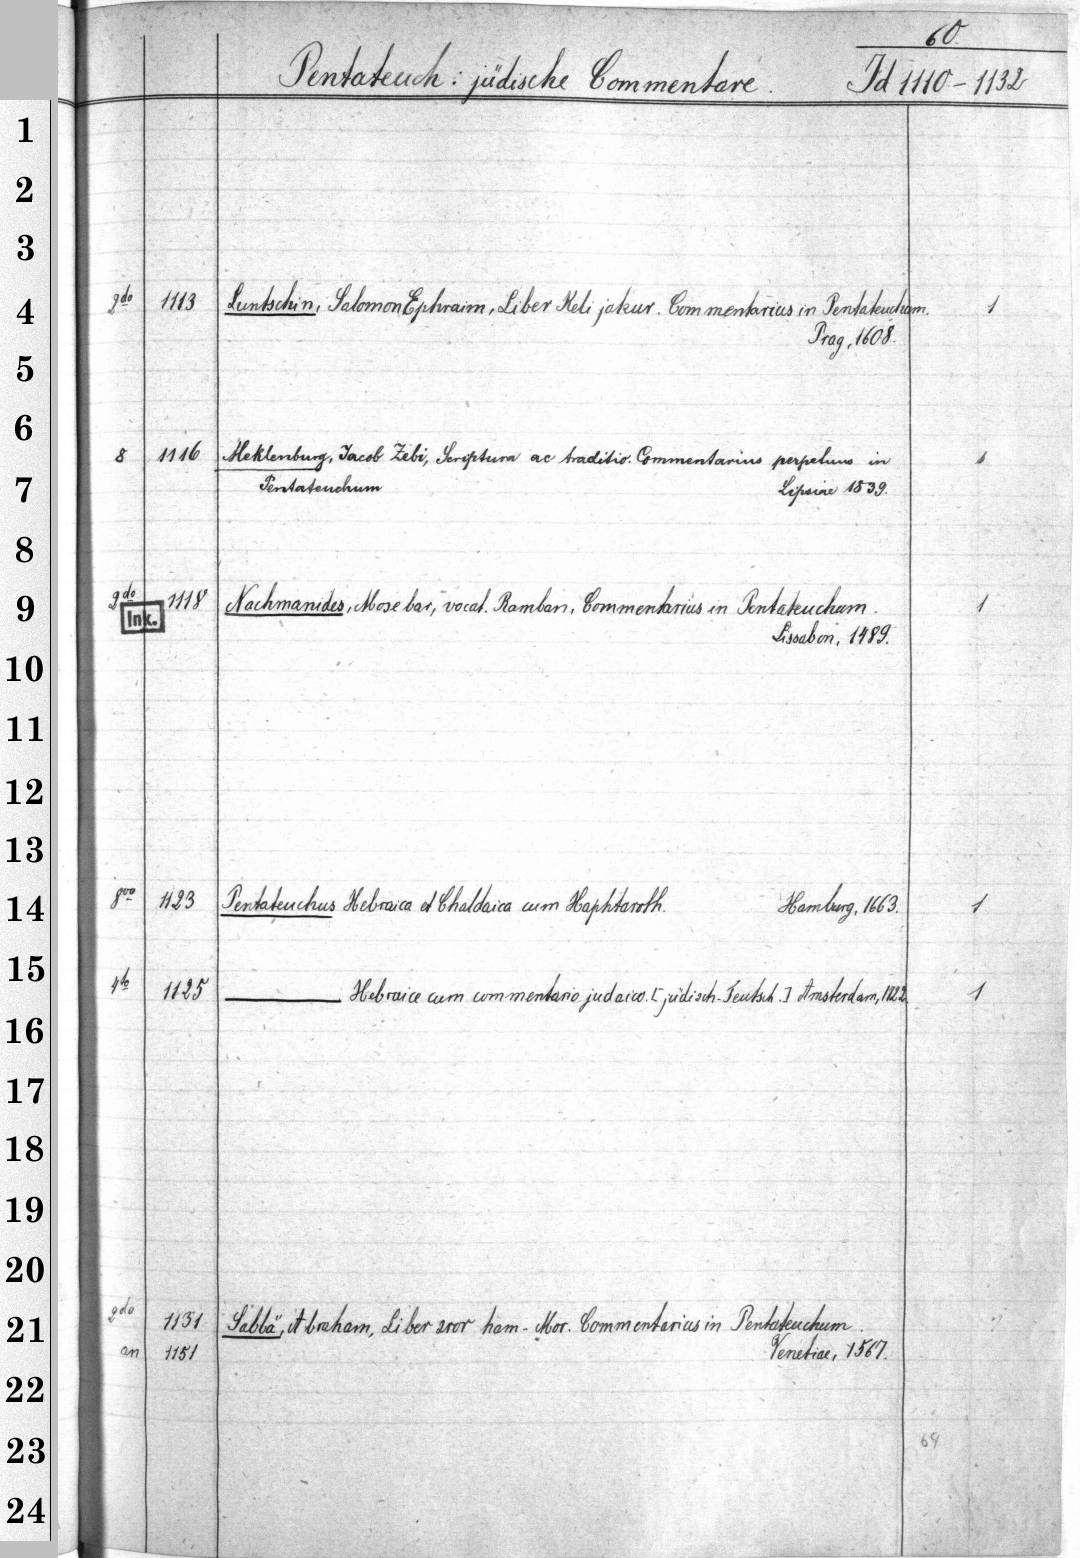 60.
Pentateuch : jüdische Commentare. Id 1110 - 1132
1
2
3
2do 1113 Luntschin, Salomon Ephraim, Liber Keli jakur. Commentarius in Pentateucham. 1
4
Prag, 1608.
5
6
8 1116 Meklenburg, Jacob Zebi, Scriptura ac traditio. Commentarius perpetuus in 1
7
Pentateuchum Lipsiae 1839.
8
2do 1118 Nachmanides, Mose bar, vocat. Ramban, Commentarius in Pentateuchum. 1
9
Ink.
Lissabon, 1489.
10
11
12
13
14
8vo 1123 Pentateuchus Hebraica et Chaldaica cum Haphtaroth. Hamburg, 1663. 1
15
4to 1125 ——— Hebraice cum commentario judaico. [jüdisch-Teutsch.] Amsterdam, 1
16
17
18
19
20
21
2do 1131 Sabbä, Abraham, Liber zror ham-Mor. Commentarius in Pentateuchum.
an 1151 Venetiae, 1567.
22
23
64
24